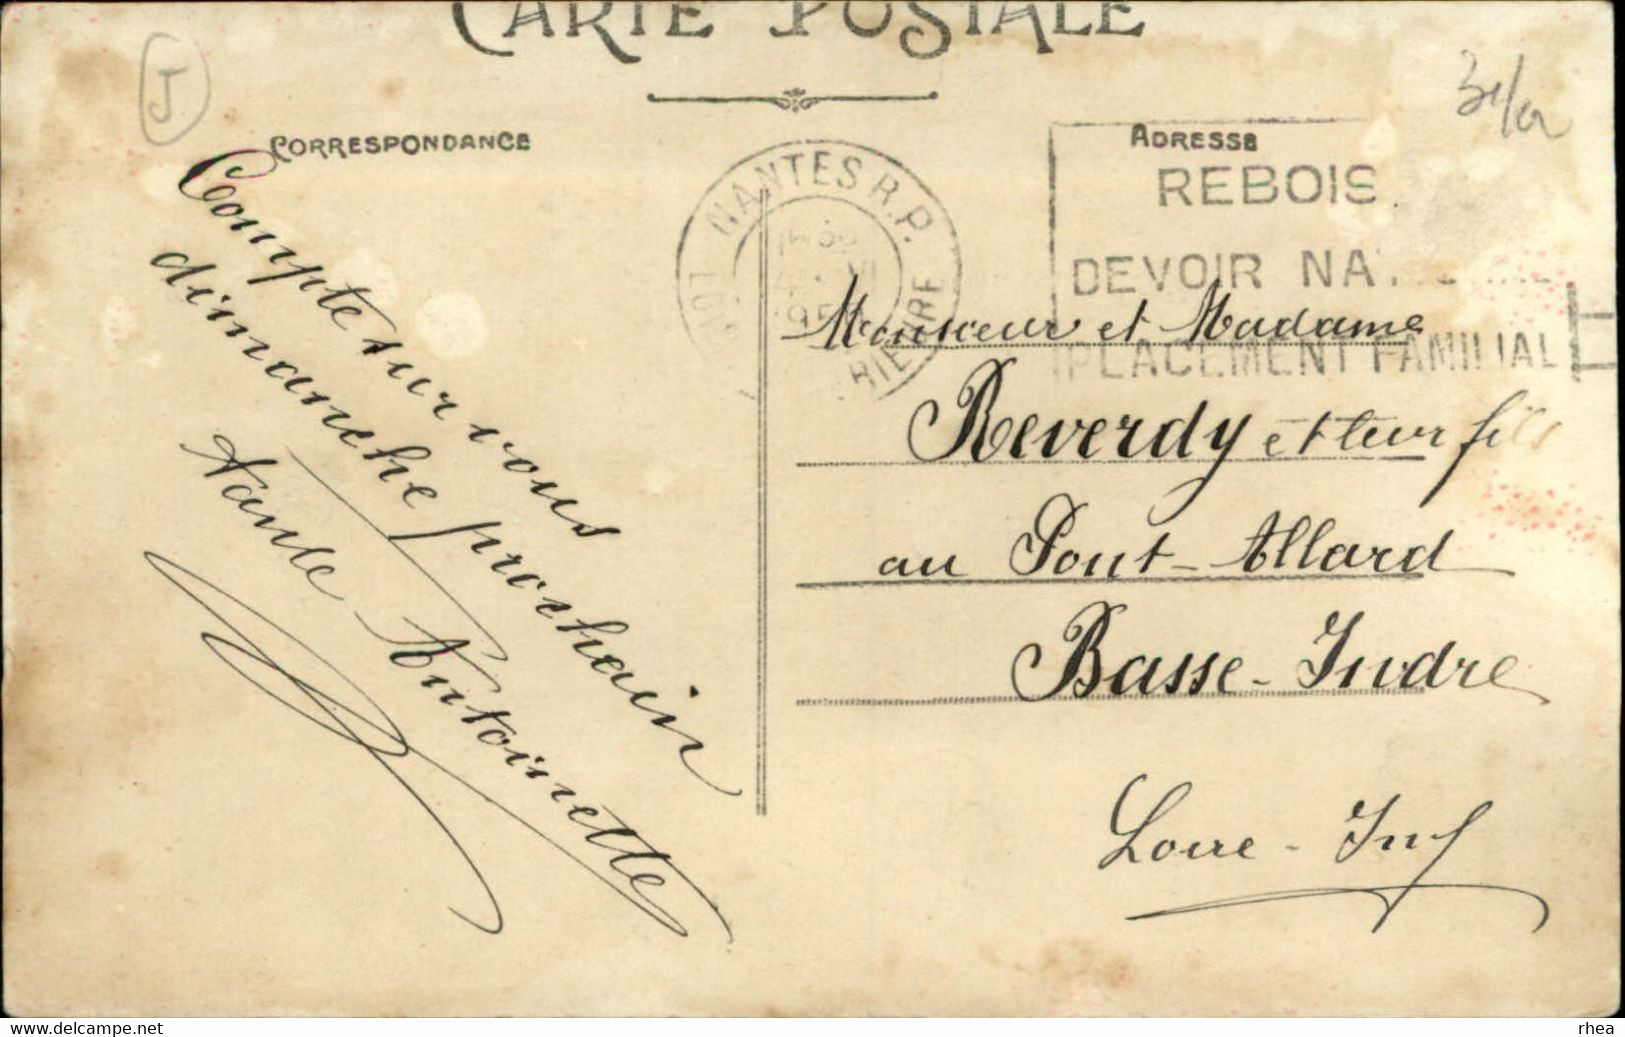 CARTE POSTALE
J
CORRESPONDANCE
Compte sur vous
dimanche prochain
Tante Antoinette
NANTES R.P.
LOIRE INFERIEURE
ADRESSE
REBOIS
DEVOIR NA
PLACEMENT FAMILIAL
Monsieur et Madame
Reverdy et leur fils
au Pont-Allard
Basse-Indre
Loire-Inf
www.delcampe.net
rhea